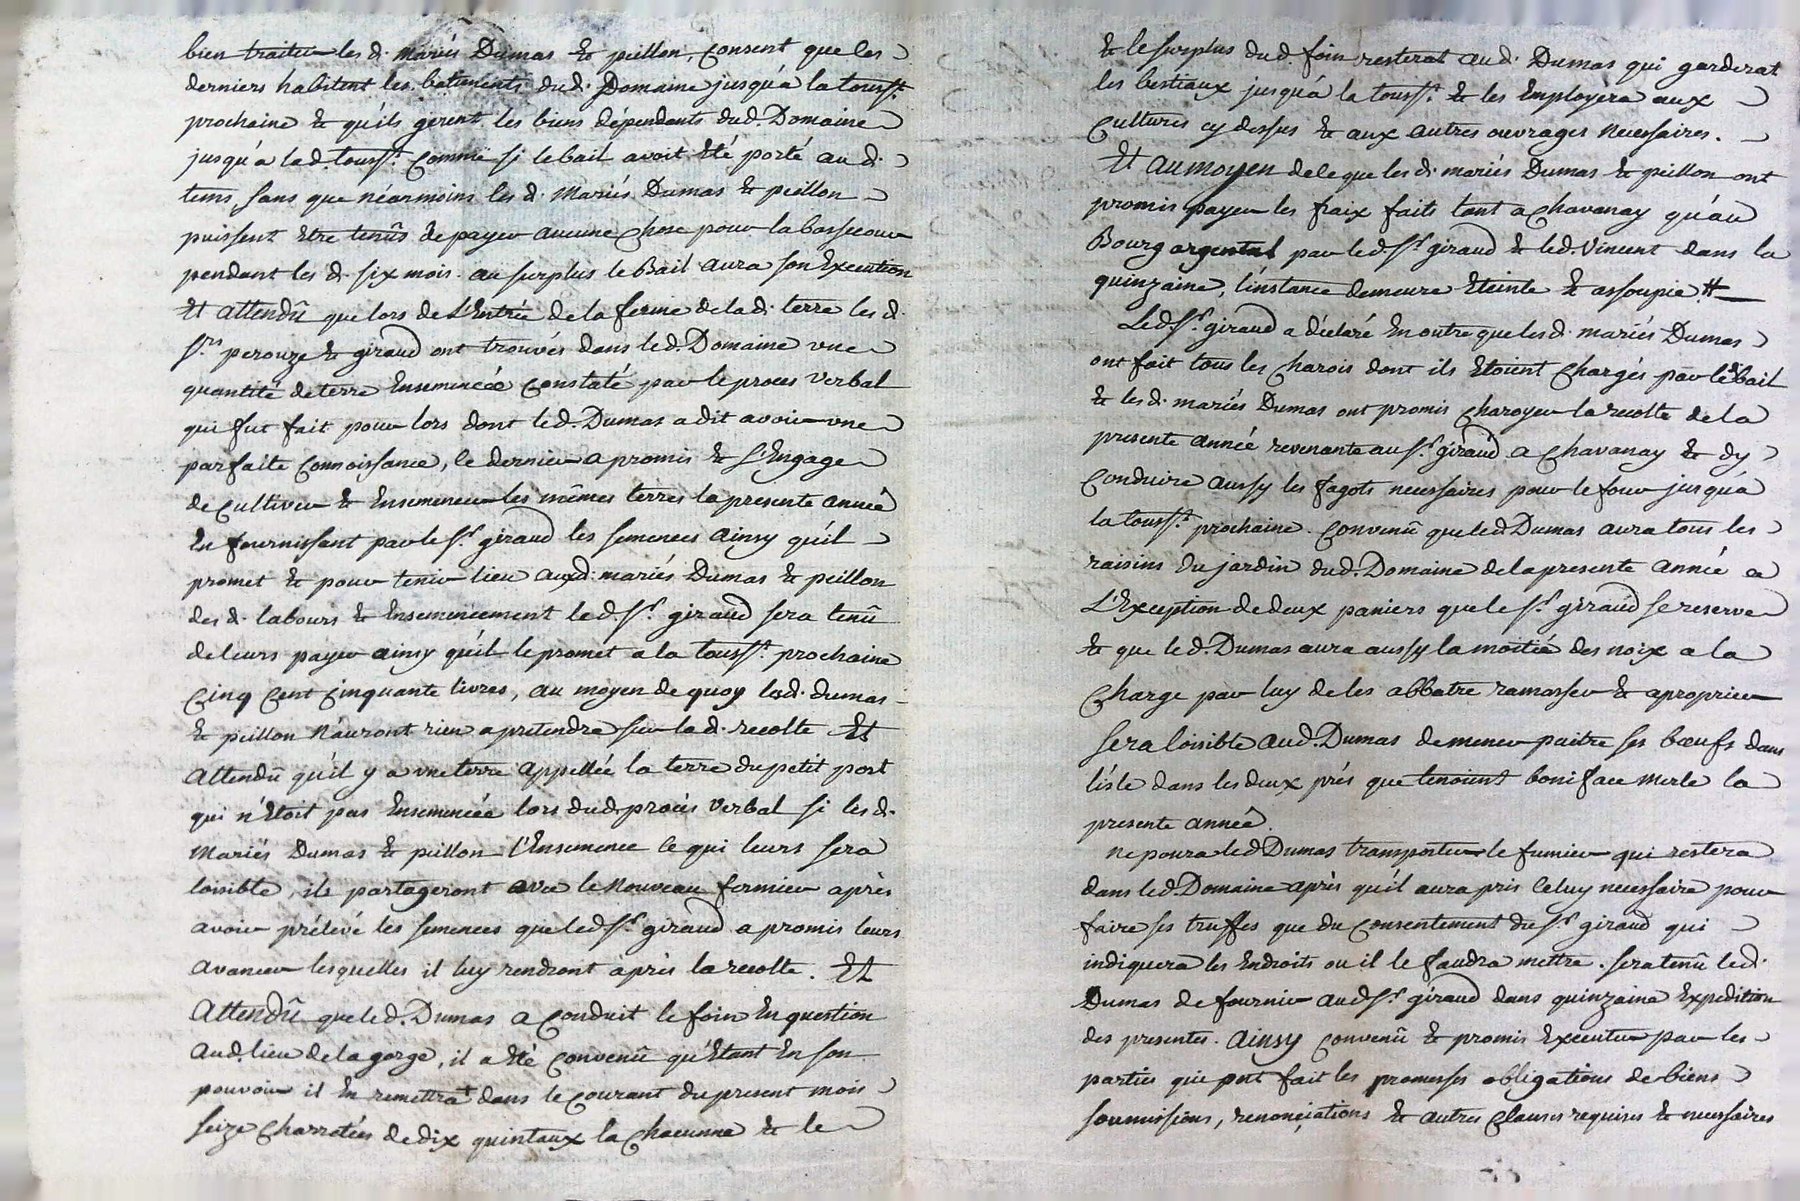 bien traiter les d. mariés Dumas & peillon, consent que les
derniers habitent les batiments dud. Domaine jusqu'a la touss.t
prochaine & qu'ils gerent les biens dépendants dud. Domaine
jusqu'a lad. touss.t comme si le bail avoit Eté porté au d.
tems, sans que néanmoins les d. Mariés Dumas & peillon
puissent Etre tenûs de payer aucune Chose pour la bassecour
pendant les d. six mois. au surplus le Bail aura son Execution
Et attendû que lors de L'Entrée de la ferme de la d. terre les d.
S.rs perouze & giraud ont trouvés dans led. Domaine une
quantité de terre Ensemencée constaté par le procès verbal
qui fut fait pour lors dont led. Dumas a dit avoir une
parfaite connoissance, ce dernier a promis & S'Engage
de cultiver & Ensemencer les mêmes terres la presente année
En fournissant par le S.r giraud les semences ainsy qu'il
promet & pour tenir lieu auxd. mariés Dumas & peillon
des d. labours & Ensemencement led. S.r giraud sera tenû
de leurs payer ainsy qu'il le promet a la touss.t prochaine
Cinq Cent Cinquante livres, au moyen de quoy lesd. dumas
& peillon N'auront rien a pretendre sur lad. recolte Et
Attendû qu'il y a une terre appellée la terre du petit port
qui n'Etoit pas Ensemencée lors dud. procès verbal si les d.
Mariés Dumas & peillon l'Ensemence ce qui leurs sera
loisible, ils partageront avec le Nouveau fermier après
avoir prélevé les semences que led. S.r giraud a promis leurs
avancer lesquelles il luy rendront après la recolte. Et
Attendû que led. Dumas a conduit le foin En question
aud. lieu de la gorge, il a Eté convenû qu'Etant En son
pouvoir il En remettra dans le courant du present mois
seize Charretées de dix quintaux la Chacunne & le
& le surplus dud. foin resterat aud. Dumas qui garderat
les bestiaux jusqu'a la touss.t & les Employera aux
Cultures cy dessus & aux autres ouvrages Necessaires.
Et au moyen de ce que les d. mariés Dumas & peillon ont
promis payer les fraix faits tant a Chavanay qu'au
Bourg argental par led. S.r giraud & led. Vincent dans la
quinzaine, l'instance demeure Eteinte & assoupie.
Led. S.r giraud a déclaré En outre que les d. mariés Dumas
ont fait tous les Charois dont ils Etoient Chargés par led. bail
& les d. mariés Dumas ont promis Charoyer la recolte de la
presente année revenante au S.r giraud a Chavanay & d'y
Conduire aussy les fagots necessaires pour le four jusqu'a
la touss.t prochaine. Convenû que led. Dumas aura tous les
raisins du jardin dud. Domaine de la presente année a
L'Exception de deux paniers que le S.r giraud se reserve
& que led. Dumas aura aussy la moitié des noix a la
Charge par luy de les abbatre ramasser & aproprier
sera loisible aud. Dumas de mener paitre ses bœufs dans
l'isle dans les deux prés que tenoient boniface merle la
presente année.
Ne poura led. Dumas transporter le fumier qui restera
dans led. Domaine après qu'il aura pris Celuy necessaire pour
faire ses truffes que du Consentement du S.r giraud qui
indiquera les Endroits ou il le faudra mettre. sera tenû led.
Dumas de fournir aud. S.r giraud dans quinzaine Expedition
des presentes. Ainsy convenû & promis Executer par les
parties qui ont fait les promesses obligations de biens
soumissions, renonciations & autres Clauses requises & necessaires